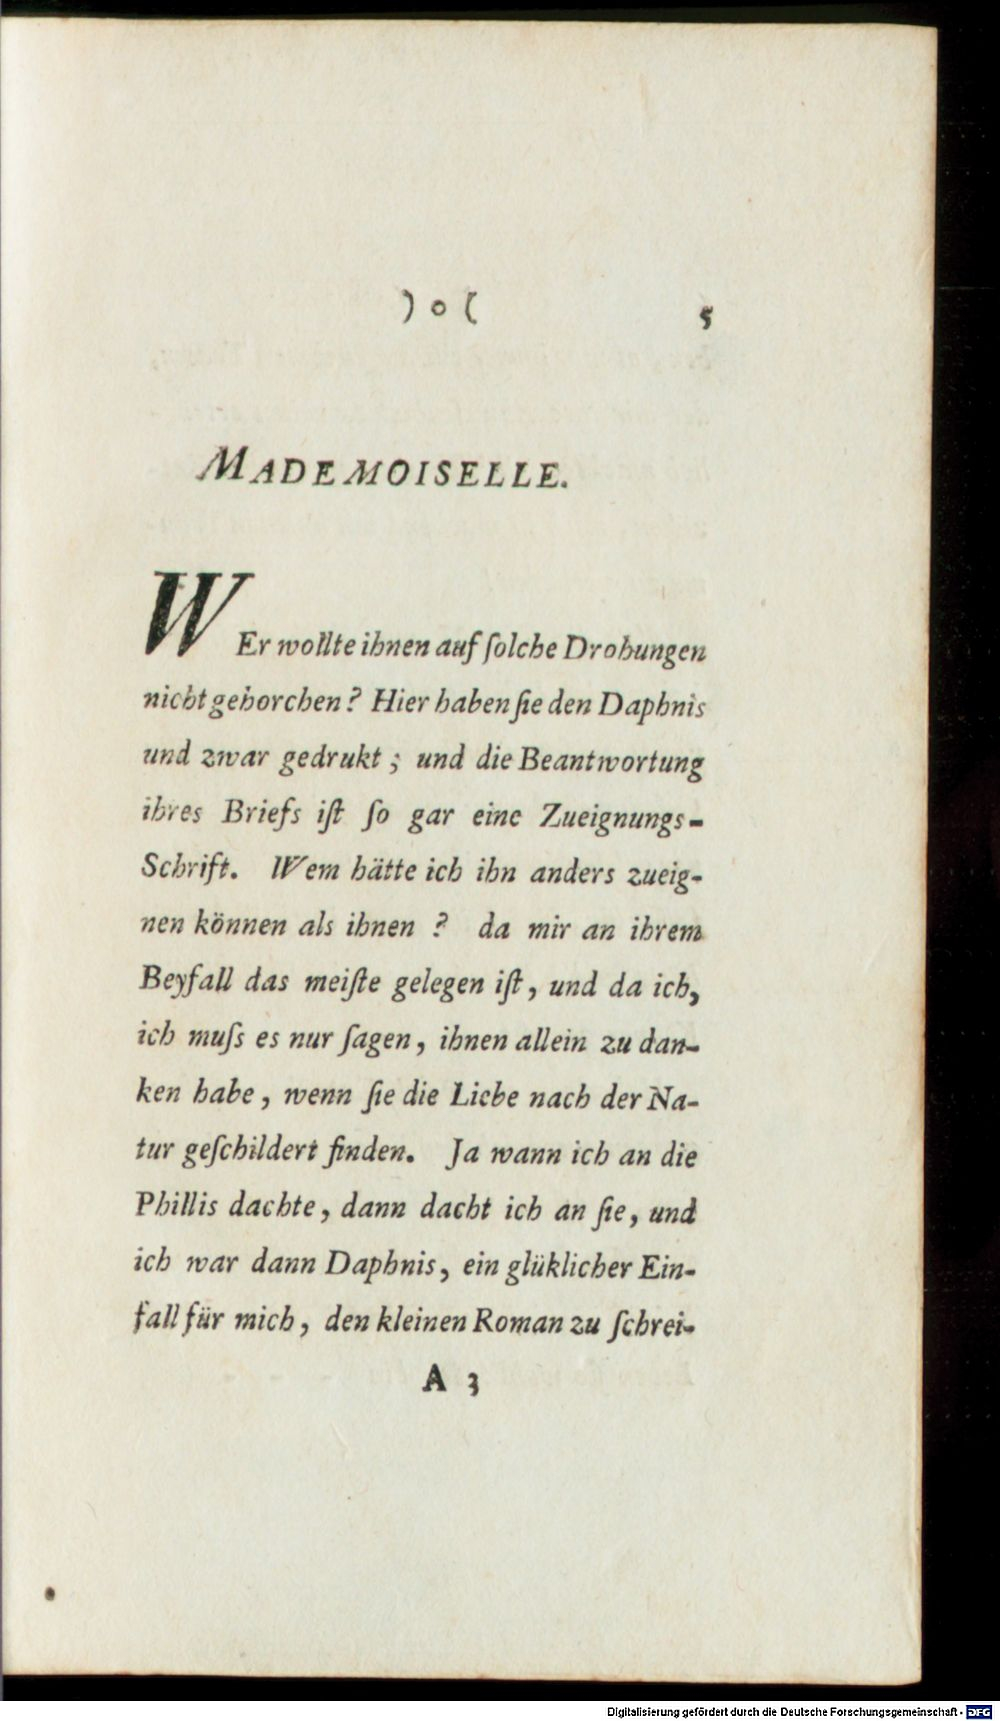 ) o (
5
MADEMOISELLE.
WEr wollte ihnen auf ſolche Drohungen
nicht gehorchen? Hier haben ſie den Daphnis
und zwar gedrukt; und die Beantwortung
ihres Briefs iſt ſo gar eine Zueignungs-
Schrift. Wem hätte ich ihn anders zueig-
nen können als ihnen? da mir an ihrem
Beyfall das meiſte gelegen iſt, und da ich,
ich muſs es nur ſagen, ihnen allein zu dan-
ken habe, wenn ſie die Liebe nach der Na-
tur geſchildert finden. Ja wann ich an die
Phillis dachte, dann dacht ich an ſie, und
ich war dann Daphnis, ein glüklicher Ein-
fall für mich, den kleinen Roman zu ſchrei-
A 3
Digitalisierung gefördert durch die Deutsche Forschungsgemeinschaft - DFG